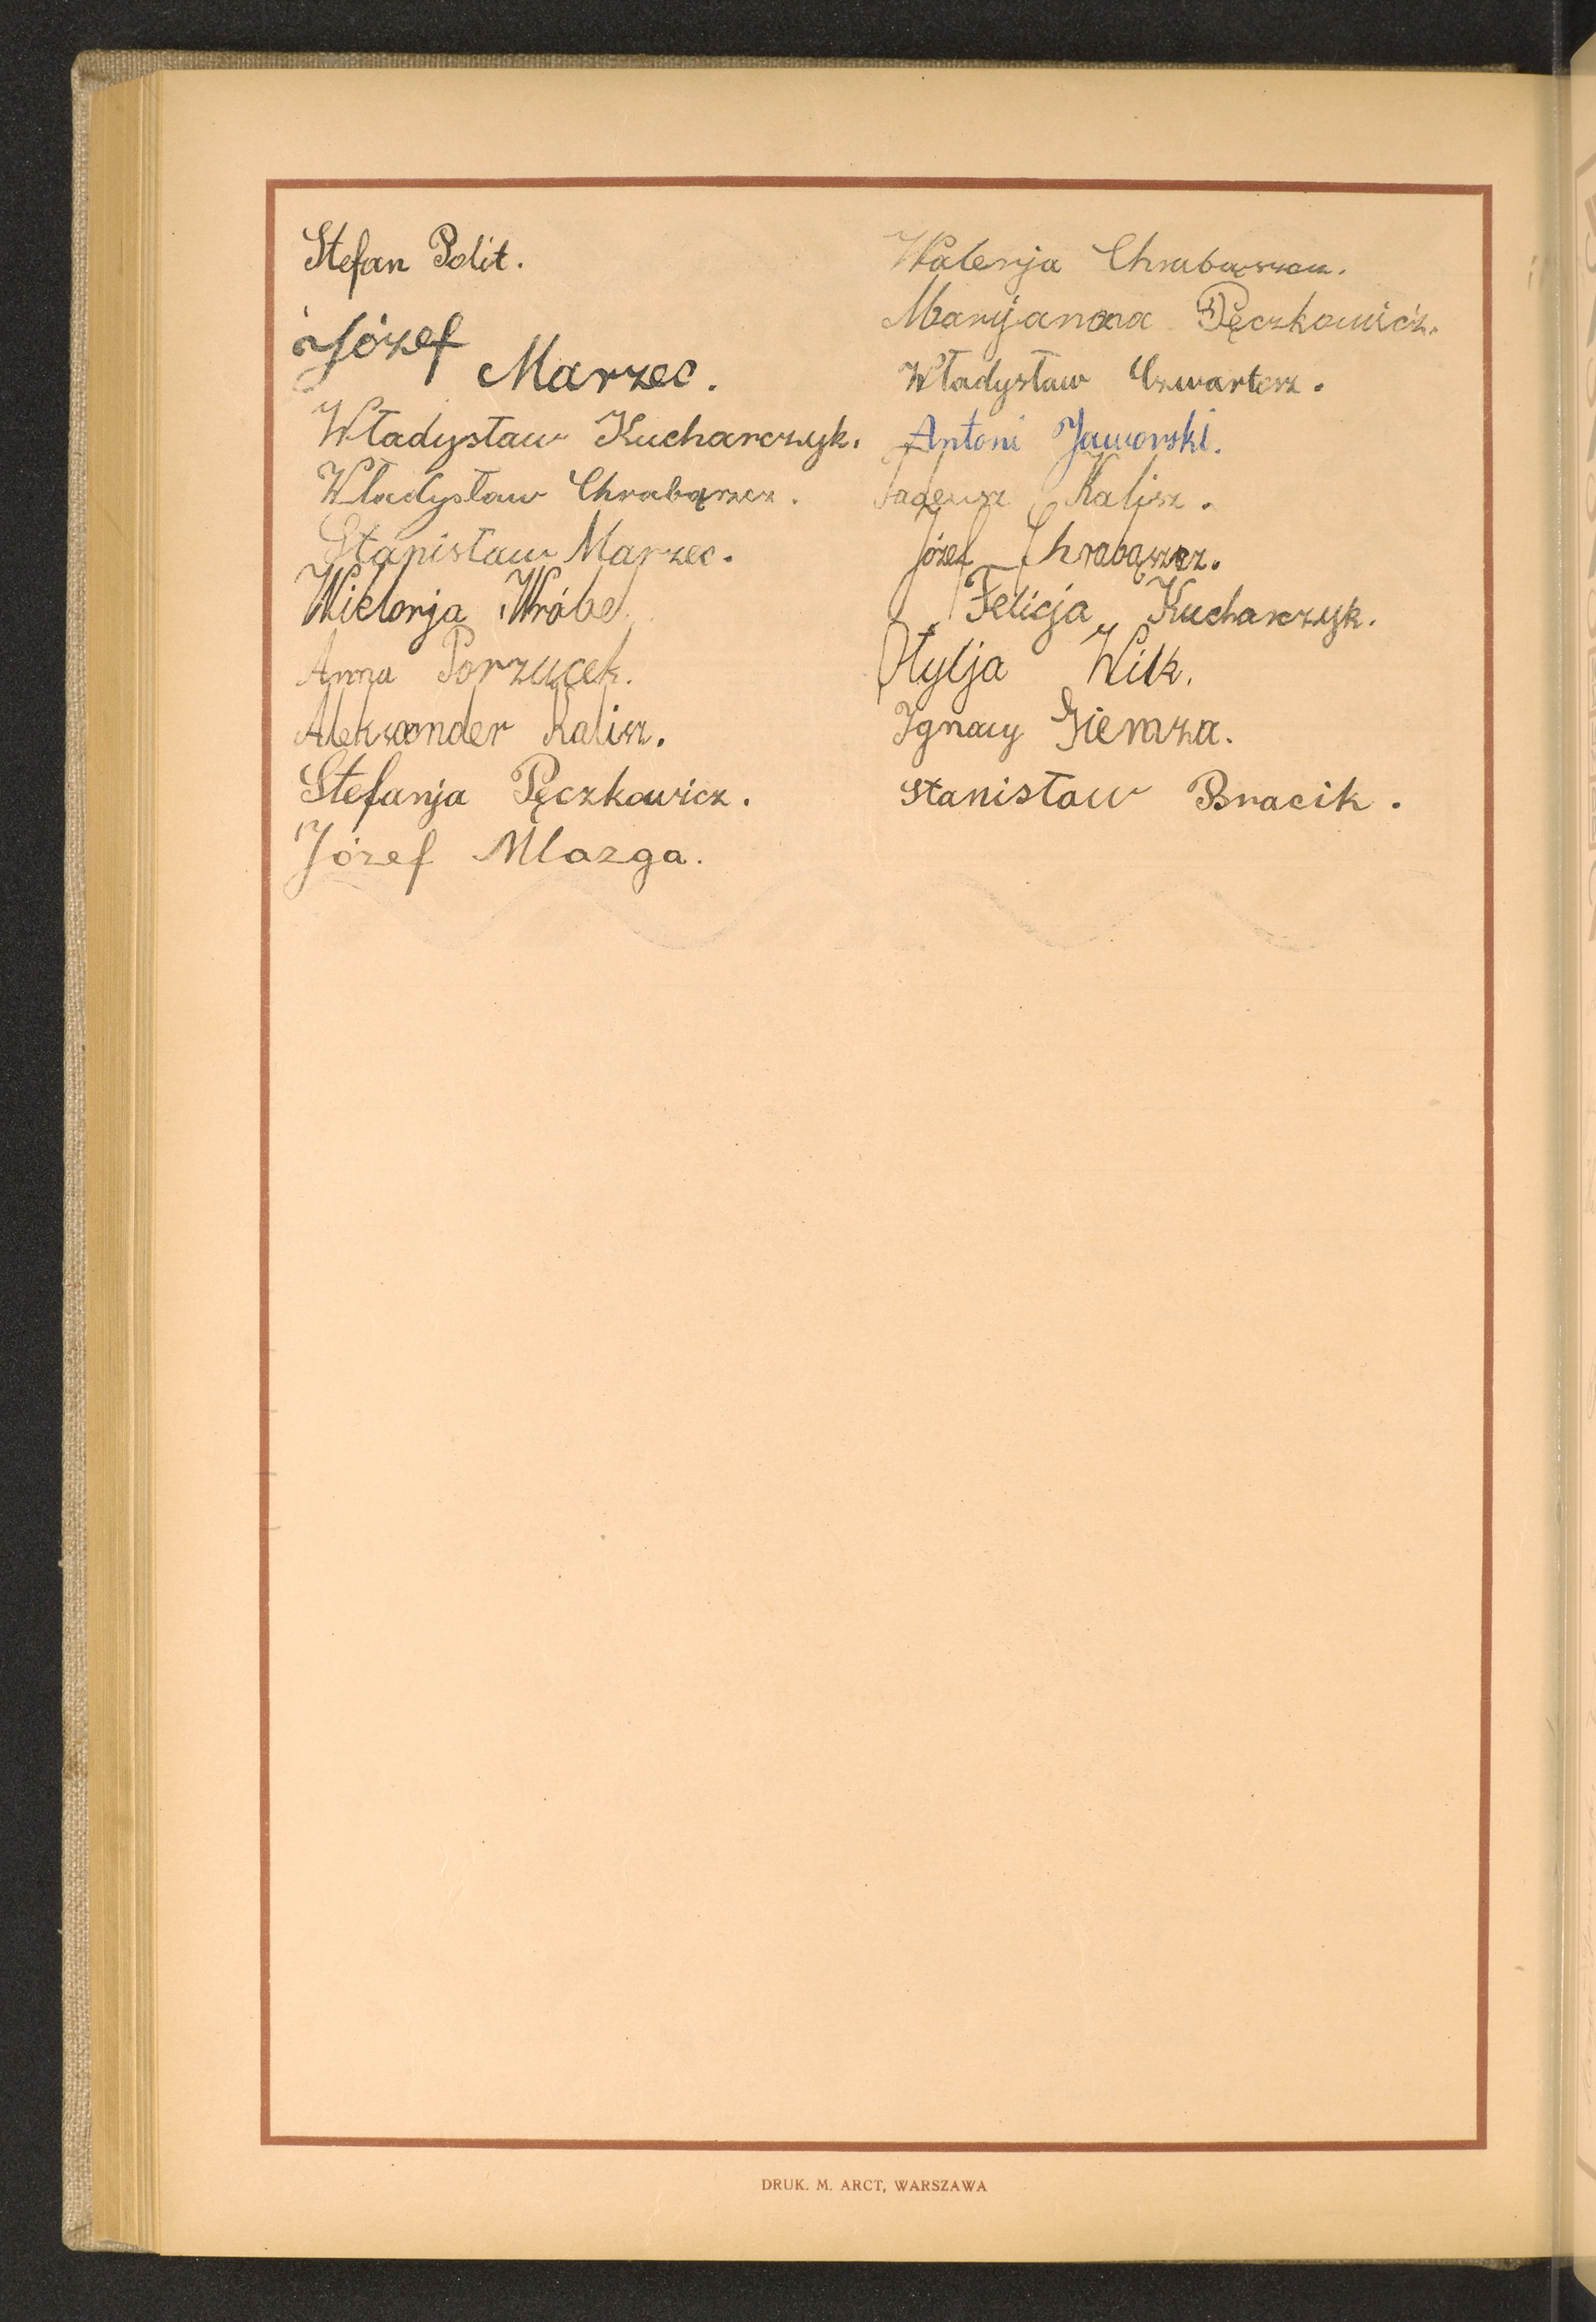 Stefan Polit.
Józef
Marzec.
Władysław Kucharczyk.
Władysław Chrabąszcz.
Stanisław Marzec.
Wiktorja Wróbel
Anna Porzucek.
Aleksander Kalisz.
Stefanja Pęczkowicz.
Józef Mlazga.
Walerja Chrabąszcz.
Marijanna Pęczkowicz.
Władysław Czwartosz.
Antoni Jaworski.
Tadeusz Kalisz.
Józef Chrabąszcz.
Felicja Kucharczyk.
Otylja Wilk.
Ignacy Giemza.
Stanisław Bracik.
DRUK. M. ARCT, WARSZAWA